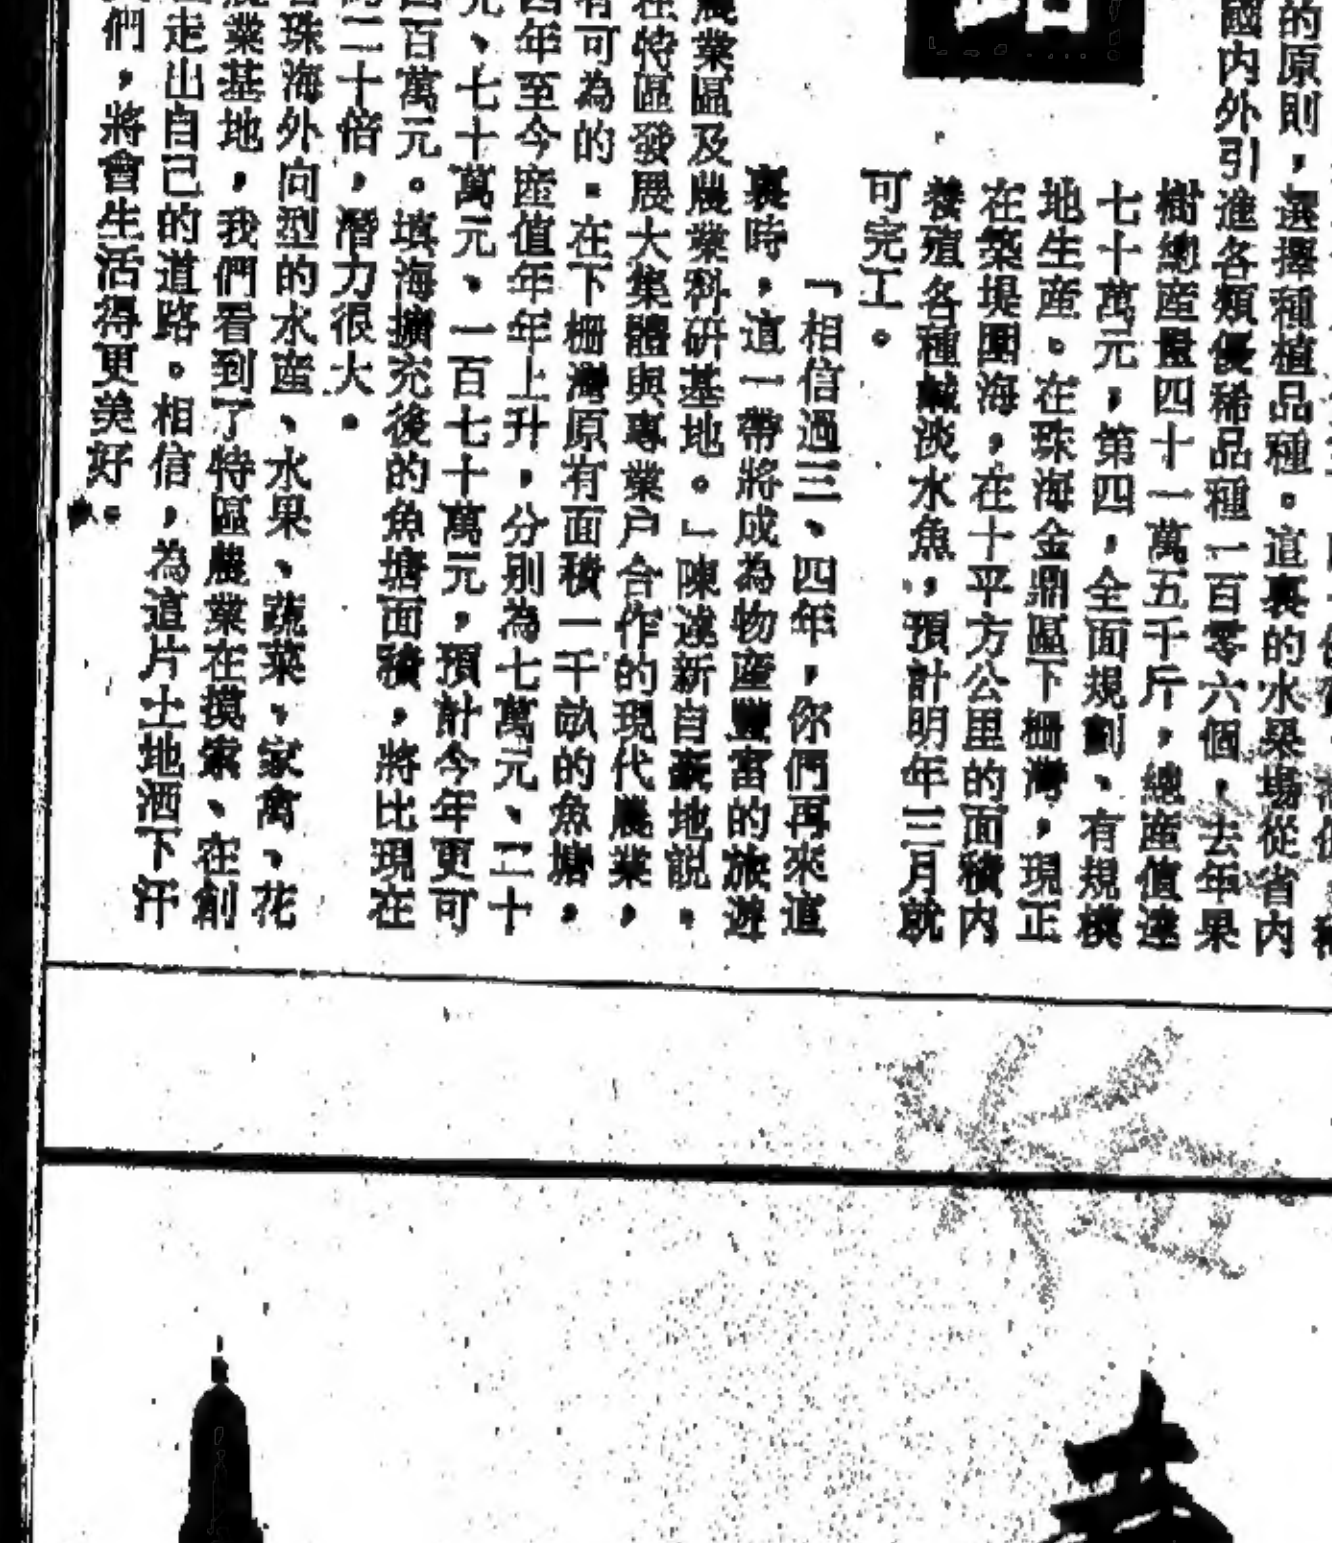 路
的原則，選擇種植品種。這裏的水果場從省內
國內外引進各類優稀品種一百零六個，去年果
樹總產量四十一萬五千斤，總產值達
七十萬元，第四，全面規劃、有規模
地生産。在珠海金鼎區下柵灣，現正
在築堤圍海，在十平方公里的面積內
養殖各種鹹淡水魚，預計明年三月就
可完工。
「相信過三、四年，你們再來這
裏時，這一帶將成為物產豐富的旅遊
農業區及農業科研基地。」陳遠新自豪地說。
在特區發展大集體與專業户合作的現代農業，
有可為的。在下柵灣原有面積一千畝的魚塘，
四年至今産值年年上升，分別為七萬元、二十
元、七十萬元、一百七十萬元，預計今年更可
四百萬元。填海擴充後的魚塘面積，將比現在
二十倍，潛力很大。
珠海外向型的水産、水果、蔬菜、家禽、花
農業基地，我們看到了特區農業在摸索、在創
走出自己的道路。相信，為這片土地洒下汗
們，將會生活得更美好。